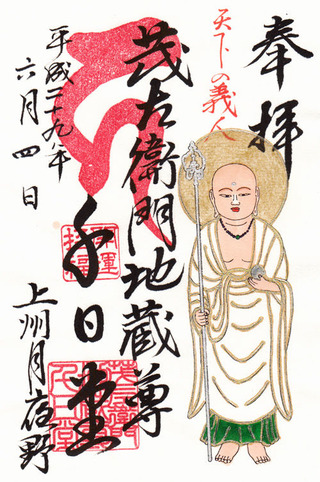 奉拝
天下の義人
茂左衛門地蔵尊
千日堂
平成二十九年
六月四日
上州月夜野
開運
招福